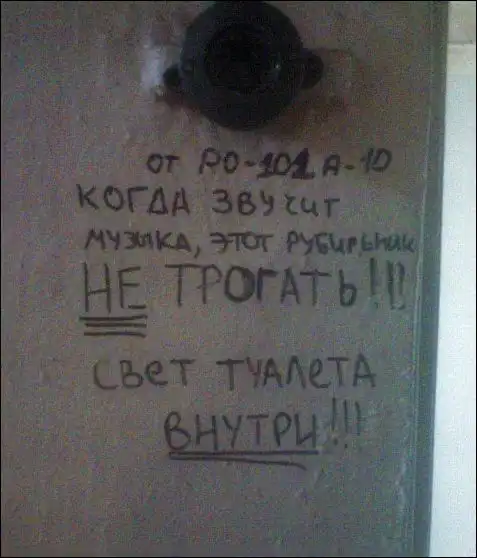 от РО-101 А-10
КОГДА ЗВУЧИТ
МУЗЫКА, ЭТОТ РУБИРЬНИК
НЕ ТРОГАТЬ!!!
СВЕТ ТУАЛЕТА
ВНУТРИ!!!